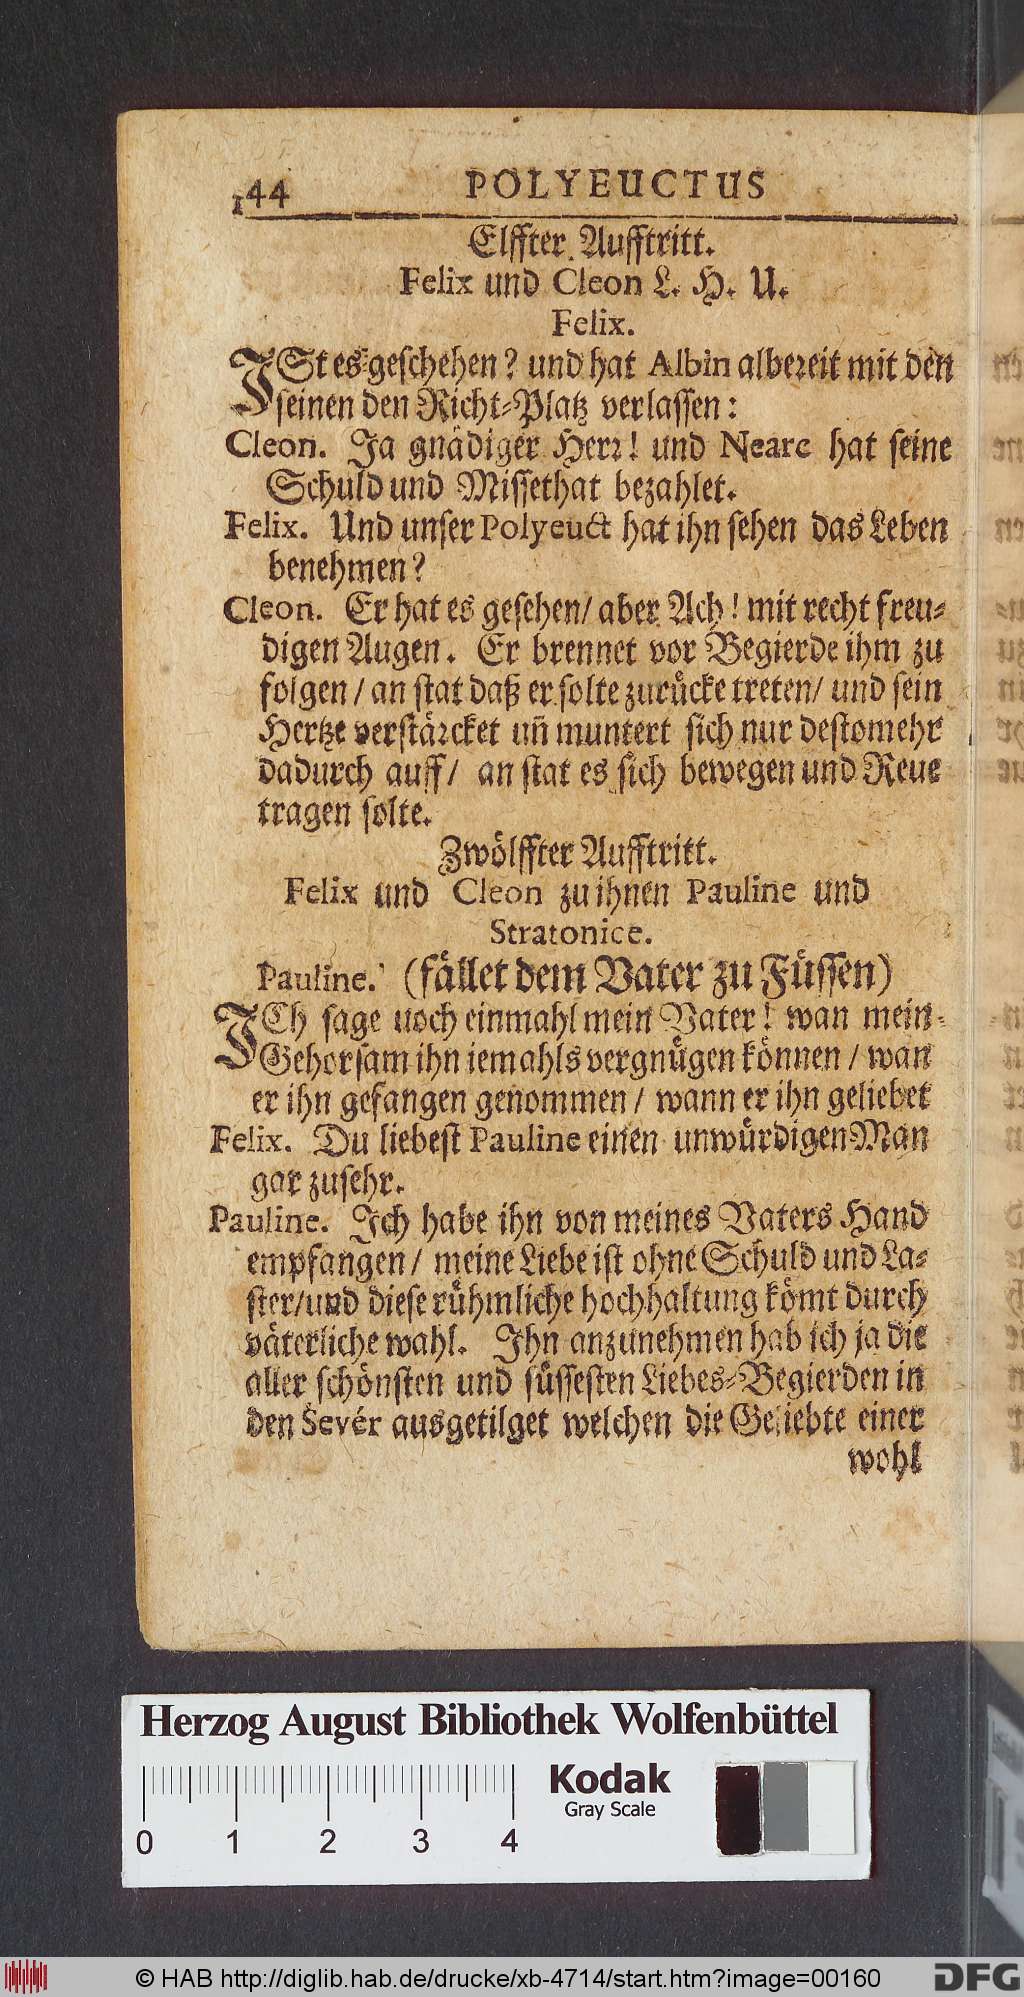 144 POLYEUCTUS
Elffter Aufftritt.
Felix und Cleon L. H. U.
Felix.
ISt es geschehen? und hat Albin albereit mit den
seinen den Richt-Platz verlassen:
Cleon. Ja gnådiger Herr! und Nearc hat seine
Schuld und Missethat bezahlet.
Felix. Und unser Polyeuct hat ihn sehen das Leben
benehmen?
Cleon. Er hat es gesehen/ aber Ach! mit recht freu-
digen Augen. Er brennet vor Begierde ihm zu
folgen / an stat daß er solte zurůcke treten/ und sein
Hertze verstårcket uñ muntert sich nur destomehr
dadurch auff/ an stat es sich bewegen und Reue
tragen solte.
Zwôlffter Aufftritt.
Felix und Cleon zu ihnen Pauline und
Stratonice.
Pauline. (fållet dem Vater zu Fůssen)
ICh sage uoch einmahl mein Vater! wan mein-
Gehorsam ihn iemahls vergnůgen kônnen / wan
er ihn gefangen genommen / wann er ihn geliebet
Felix. Du liebest Pauline einen unwůrdigen Man
gar zusehr.
Pauline. Ich habe ihn von meines Vaters Hand
empfangen/ meine Liebe ist ohne Schuld und La-
ster/und diese růhmliche hochhaltung kômt durch
våterliche wahl. Ihn anzunehmen hab ich ja die
aller schônsten und sůssesten Liebes-Begierden in
den Sevér ausgetilget welchen die Geliebte einer
wohl
Herzog August Bibliothek Wolfenbüttel
0 1 2 3 4
Kodak
Gray Scale
© HAB http://diglib.hab.de/drucke/xb-4714/start.htm?image=00160
DFG